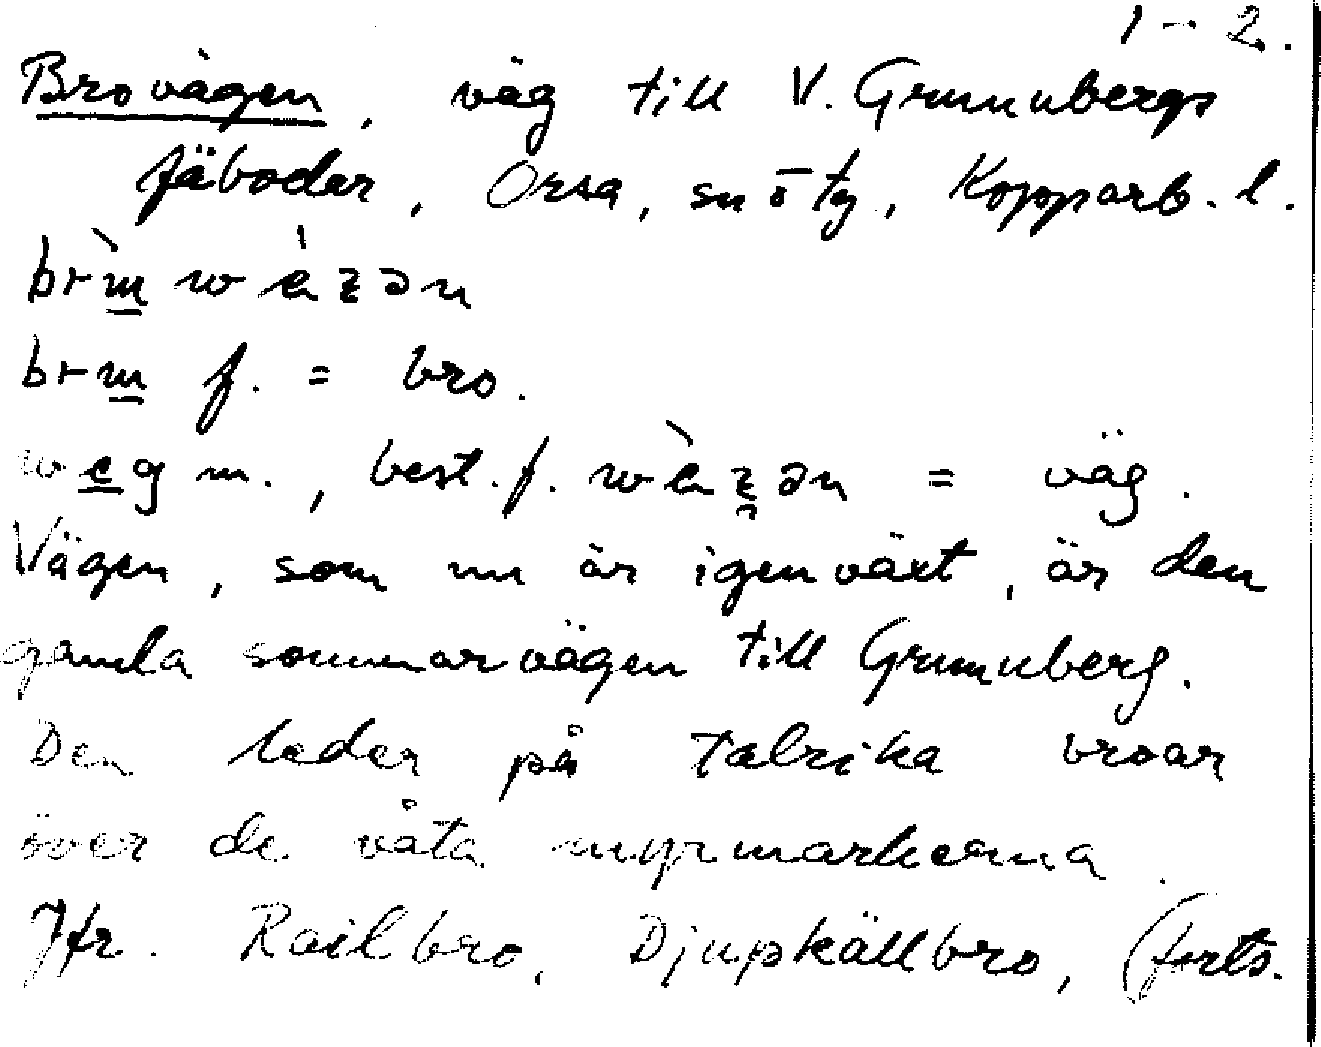 1-2.
Brovägen, väg till V. Grunubergs
fäboder, Orsa, sn o ty, Kopparb. l.
brm̲̀ wèzən
brm̲ f. = bro.
we̲g m., best. f. wèzən = väg.
Vägen, som nu är igenväxt, är den
gamla sommarvägen till Grunuberg.
Den leder på talrika broar
över de våta myrmarkerna.
Jfr. Railbro, Djupkällbro, (forts.